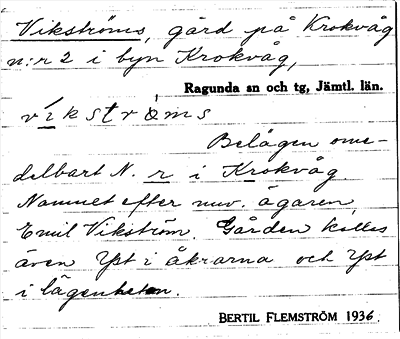 Vikströms, gård på Krokvåg
n:r 2 i byn Krokvåg,
Ragunda sn och tg, Jämtl. län.
víkströ̀ms
Belägen ome-
delbart N. r i Krokvåg.
Namnet efter nuv. ägaren,
Emil Vikström. Gården kallas
även Yst i åkrarna och Yst
i lägenheten.
BERTIL FLEMSTRÖM 1936.